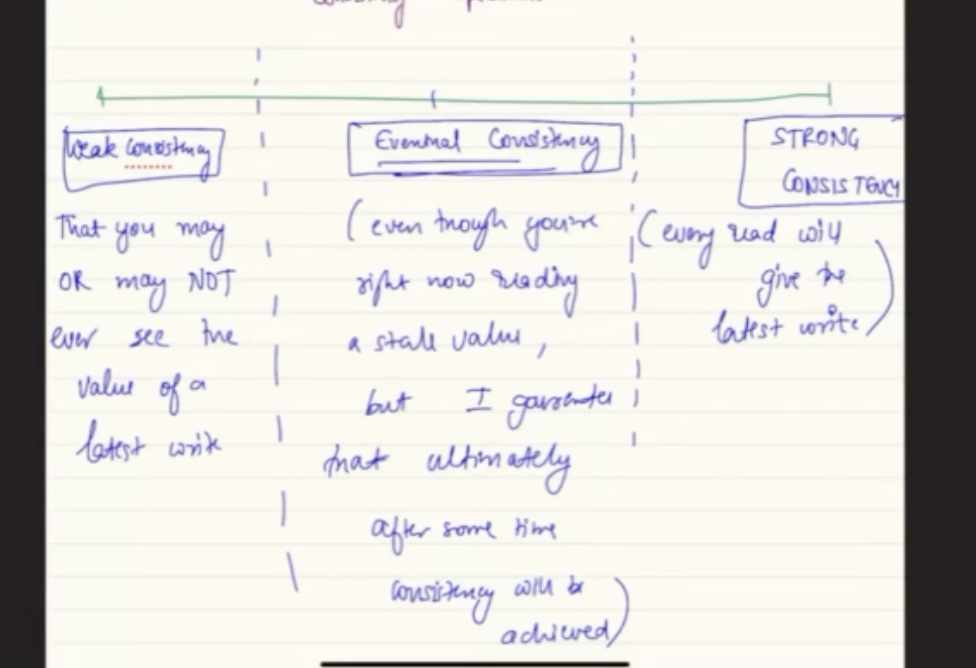 Weak Consistency
That you may
OR may NOT
ever see the
value of a
latest write
Eventual Consistency
(even though you're
right now reading
a stale value,
but I garrentee
that ultimately
after some time
consistency will be
achieved)
STRONG
CONSISTENCY
(every read will
give the
latest write)